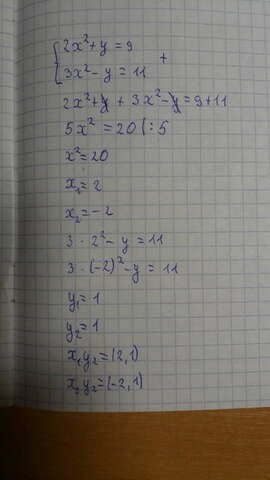 {2x²+y = 9
3x²-y = 11 +
2x²+y + 3x²-y = 9+11
5x² = 20 |:5
x²=20
x₁= 2
x₂= -2
3 · 2² - y = 11
3 · (-2)² -y = 11
y₁ = 1
y₂ = 1
x₁y₂=(2,1)
x₂y₂=(-2,1)